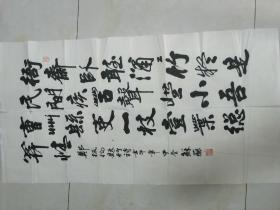 衙齋卧聽瀟〻竹疑是
民間疾苦聲些小吾
曹州縣吏一枝一葉總
關情
鄭板橋 竹詩